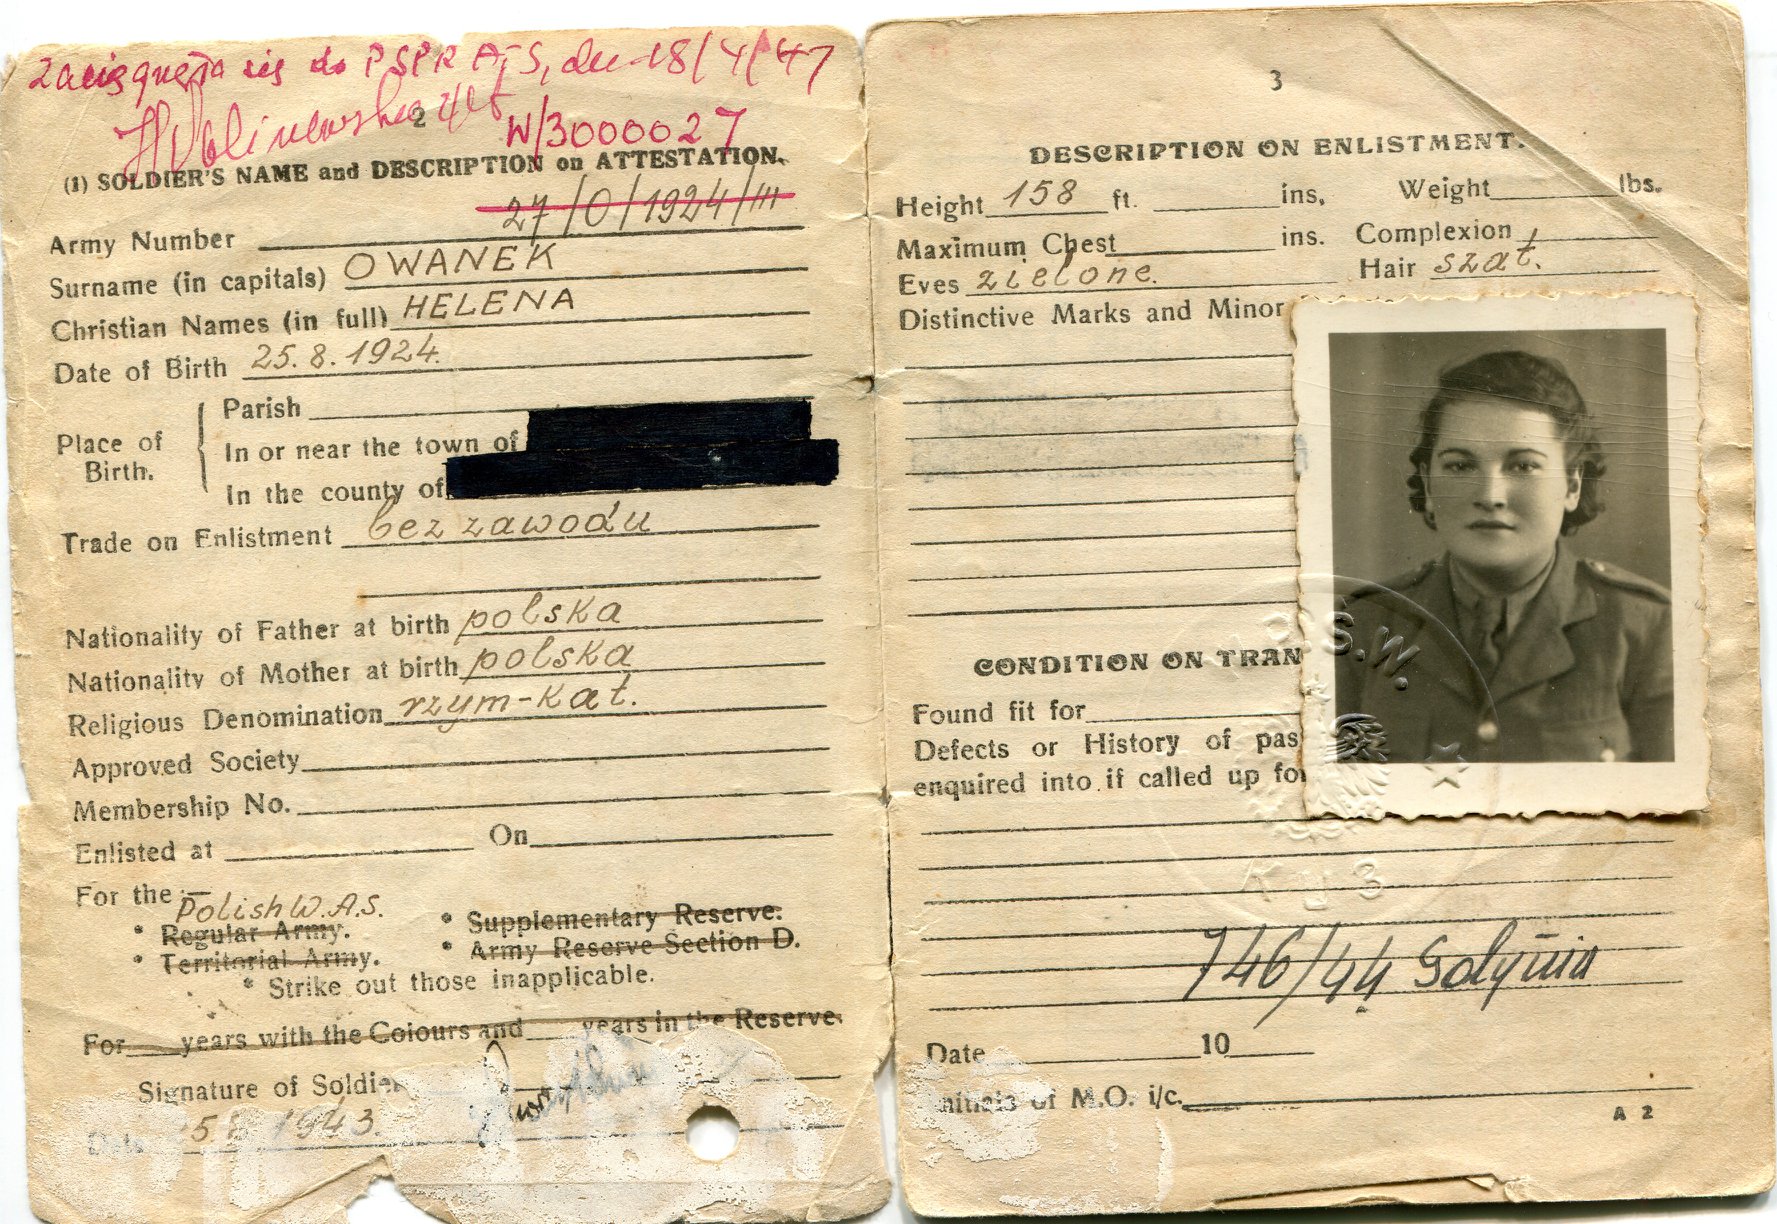 zaciągnęła się do PSPR ATS, dn 18/4/47
2
W/3000027
(1) SOLDIER'S NAME and DESCRIPTION on ATTESTATION.
27/0/1924/III
Army Number
Surname (in capitals) OWANEK
Christian Names (in full) HELENA
Date of Birth 25.8.1924.
Place of Birth.
Parish
In or near the town of
In the county of
Trade on Enlistment bez zawodu
Nationality of Father at birth polska
Nationality of Mother at birth polska
Religious Denomination rzym-kat.
Approved Society
Membership No.
Enlisted at On
For the Polish W.A.S.
* Regular Army. * Supplementary Reserve.
* Territorial Army. * Army Reserve Section D.
* Strike out those inapplicable.
For years with the Colours and years in the Reserve.
Signature of Soldier
1943.
3
DESCRIPTION ON ENLISTMENT.
Height 158 ft. ins. Weight lbs.
Maximum Chest ins. Complexion
Eyes zielone. Hair szat.
Distinctive Marks and Minor
CONDITION ON TRAN
Found fit for
Defects or History of pas
enquired into if called up for
S.W.
K 3
746/44
Date 10
Initials of M.O. i/c.
A 2